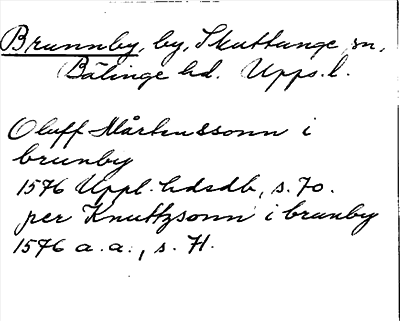 Brunnby, by, Skuttunge sn,
Bälinge hd. Upps. l.
Oluff Mårtenssonn i
brunby
1576 Uppl. hdsdb, s. 70.
per Knutzsonn i brunby
1576 a. a., s. 71.